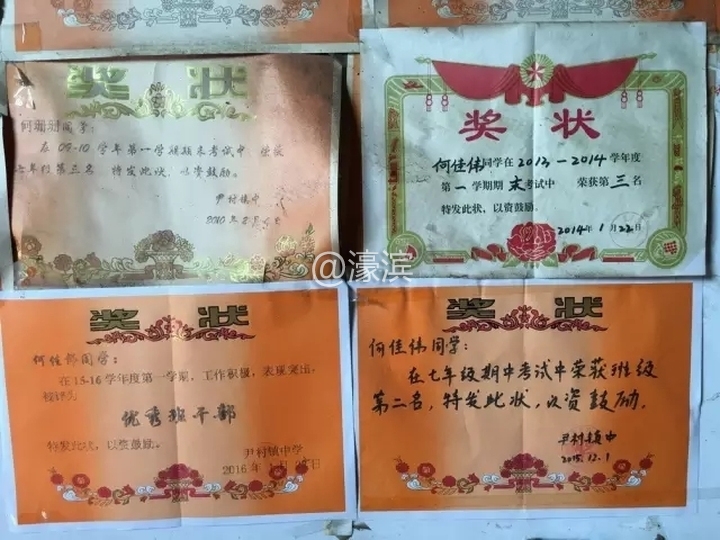 奖 状
何珊珊同学:
在09-10学年第一学期期末考试中,荣获
年级第三名 特发此状,以资鼓励。
尹村镇中
奖 状
何佳伟同学在2013-2014学年度
第一学期期末考试中 荣获第三名
特发此状,以资鼓励。
2014年1月22日
@濠滨
奖 状
何佳伟同学:
在15-16学年度第一学期,工作积极,表现突出,
被评为
优秀班干部
特发此状,以资鼓励。
尹村镇中学
2016年1月 日
奖 状
何佳伟同学:
在七年级期中考试中荣获班级
第二名,特发此状,以资鼓励。
尹村镇中
2015.12.1